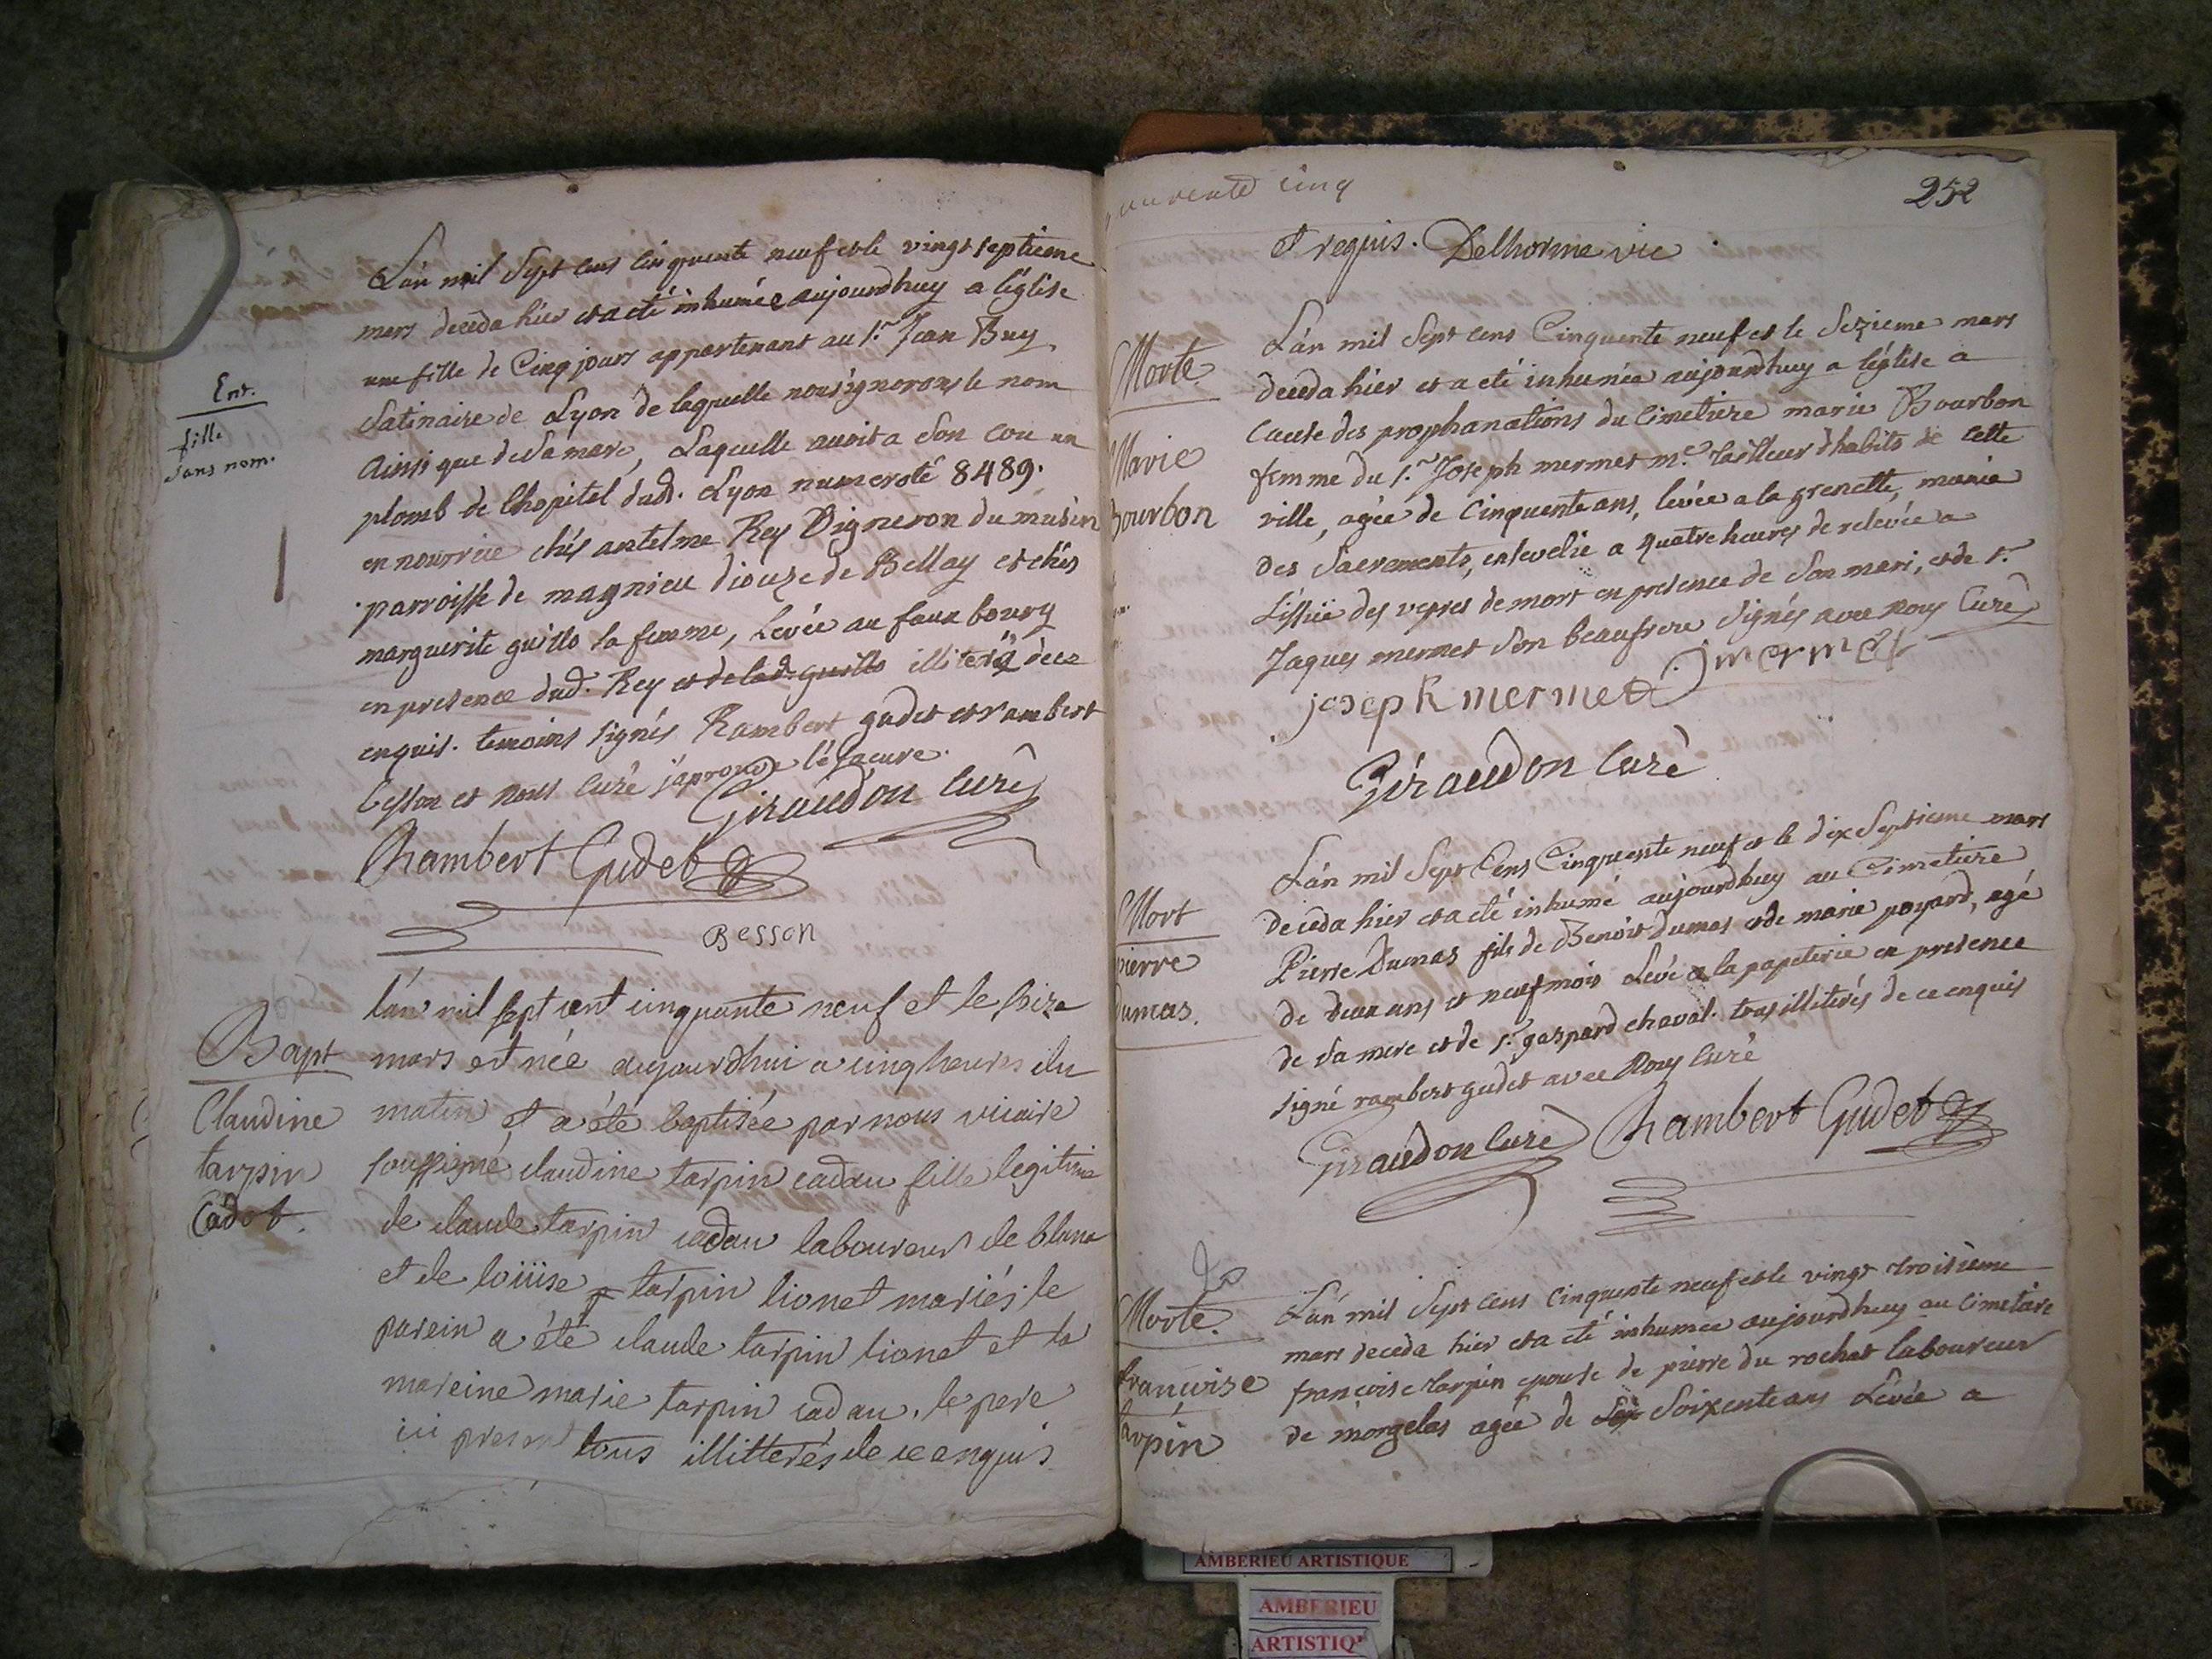 L'an mil Sept Cens Cinquante neuf et le vingt septieme
mars deceda hier et a eté inhumée aujourdhuy a l'église
une fille de Cinq jours appartenant au Sr. Jean Buy
Satinaire de Lyon de laquelle nous ignorons le nom
Ainsi que de Sa mare, Laquelle avoit a Son cou un
plomb de l'hopitel dud. Lyon numeroté 8489.
en nourrice chés antelme Rey Vigneron du
parroisse de magnieu dioceze de Bellay et chés
marguerite guillo sa femme, Levée au faux bourg
en presence dud. Rey et de lad. guillo illiteré de ce
enquis. temoins signés Rambert gudet et rambert
besson et nous Curé j'aprouve l'éfacure.
Giraudon Curé
Rambert Gudet
Besson
Ent.
fille
sans nom.
l'an mil sept cent cinquante neuf et le seize
mars est née aujourdhui a cinq heures du
matin et a été baptisée par nous vicaire
soussigné claudine tarpin cadau fille legitime
de claude tarpin cadau laboureur de blana
et de loüise tarpin lionet mariés. le
parein a été claude tarpin lionet et la
mareine marie tarpin cadau. le pere
ici present tous illitterés de ce enquis
Bapt.
Claudine
tarpin
Cadot.
quarente cinq
252
et requis. Delhorme vic
Morte
Marie
Bourbon
L'an mil Sept Cens Cinquante neuf et le Sezieme mars
deceda hier et a eté inhumée aujourdhuy a l'église a
Cause des prophanations du Cimetiere marie Bourbon
femme du Sr. Joseph mermet me. tailleur d'habits de cette
ville, agée de Cinquente ans, levée a la grenette, munie
des Sacrements, ensevelie a quatre heures de relevée a
L'issuë des vepres de mort en presence de Son mari, et de Sr.
Jaques mermet Son beaufrere Signés avec nous Curé
joseph mermet j mermet
Giraudon Curé
Mort
pierre
dumas.
L'an mil Sept Cens Cinquente neuf et le dix Septieme mars
deceda hier et a eté inhumé aujourdhuy au Cimetiere
Pierre Dumas fils de Benoit dumas et de marie payard, agé
de deux ans et neuf mois Levé a la papeterie en presence
de Sa mere et de Sr. gaspard chaval. tous illiterés de ce enquis
signé rambert gudet avec nous Curé
Giraudon Curé Rambert Gudet
Morte.
francoise
tarpin
L'an mil Sept Cens Cinquente neuf et le vingt troisieme
mars deceda hier et a eté inhumée aujourdhuy au Cimetiere
francoise tarpin epouse de pierre du rochat laboureur
de morgelas agée de Soixente ans Levée a
AMBERIEU ARTISTIQUE
AMBERIEU
ARTISTIQ